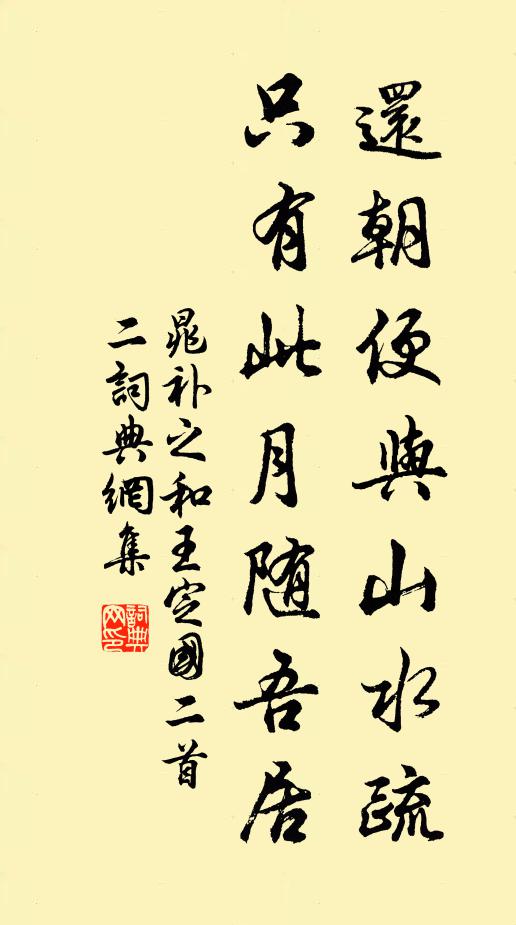 還朝便與山水疏
只有此月随吾居
晁补之和王定國二首
二詞典網集
詞典網印